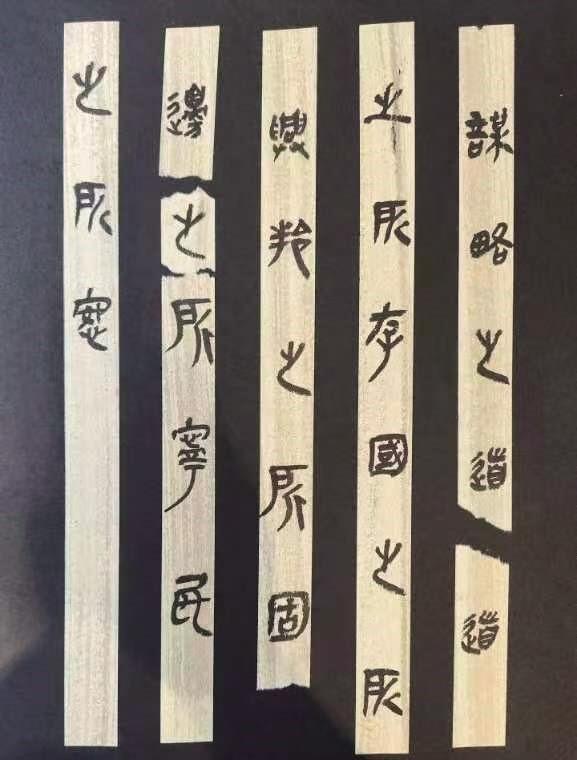 謀略之道道
之所存國之所
興之所固
邊之所寧民
之所安